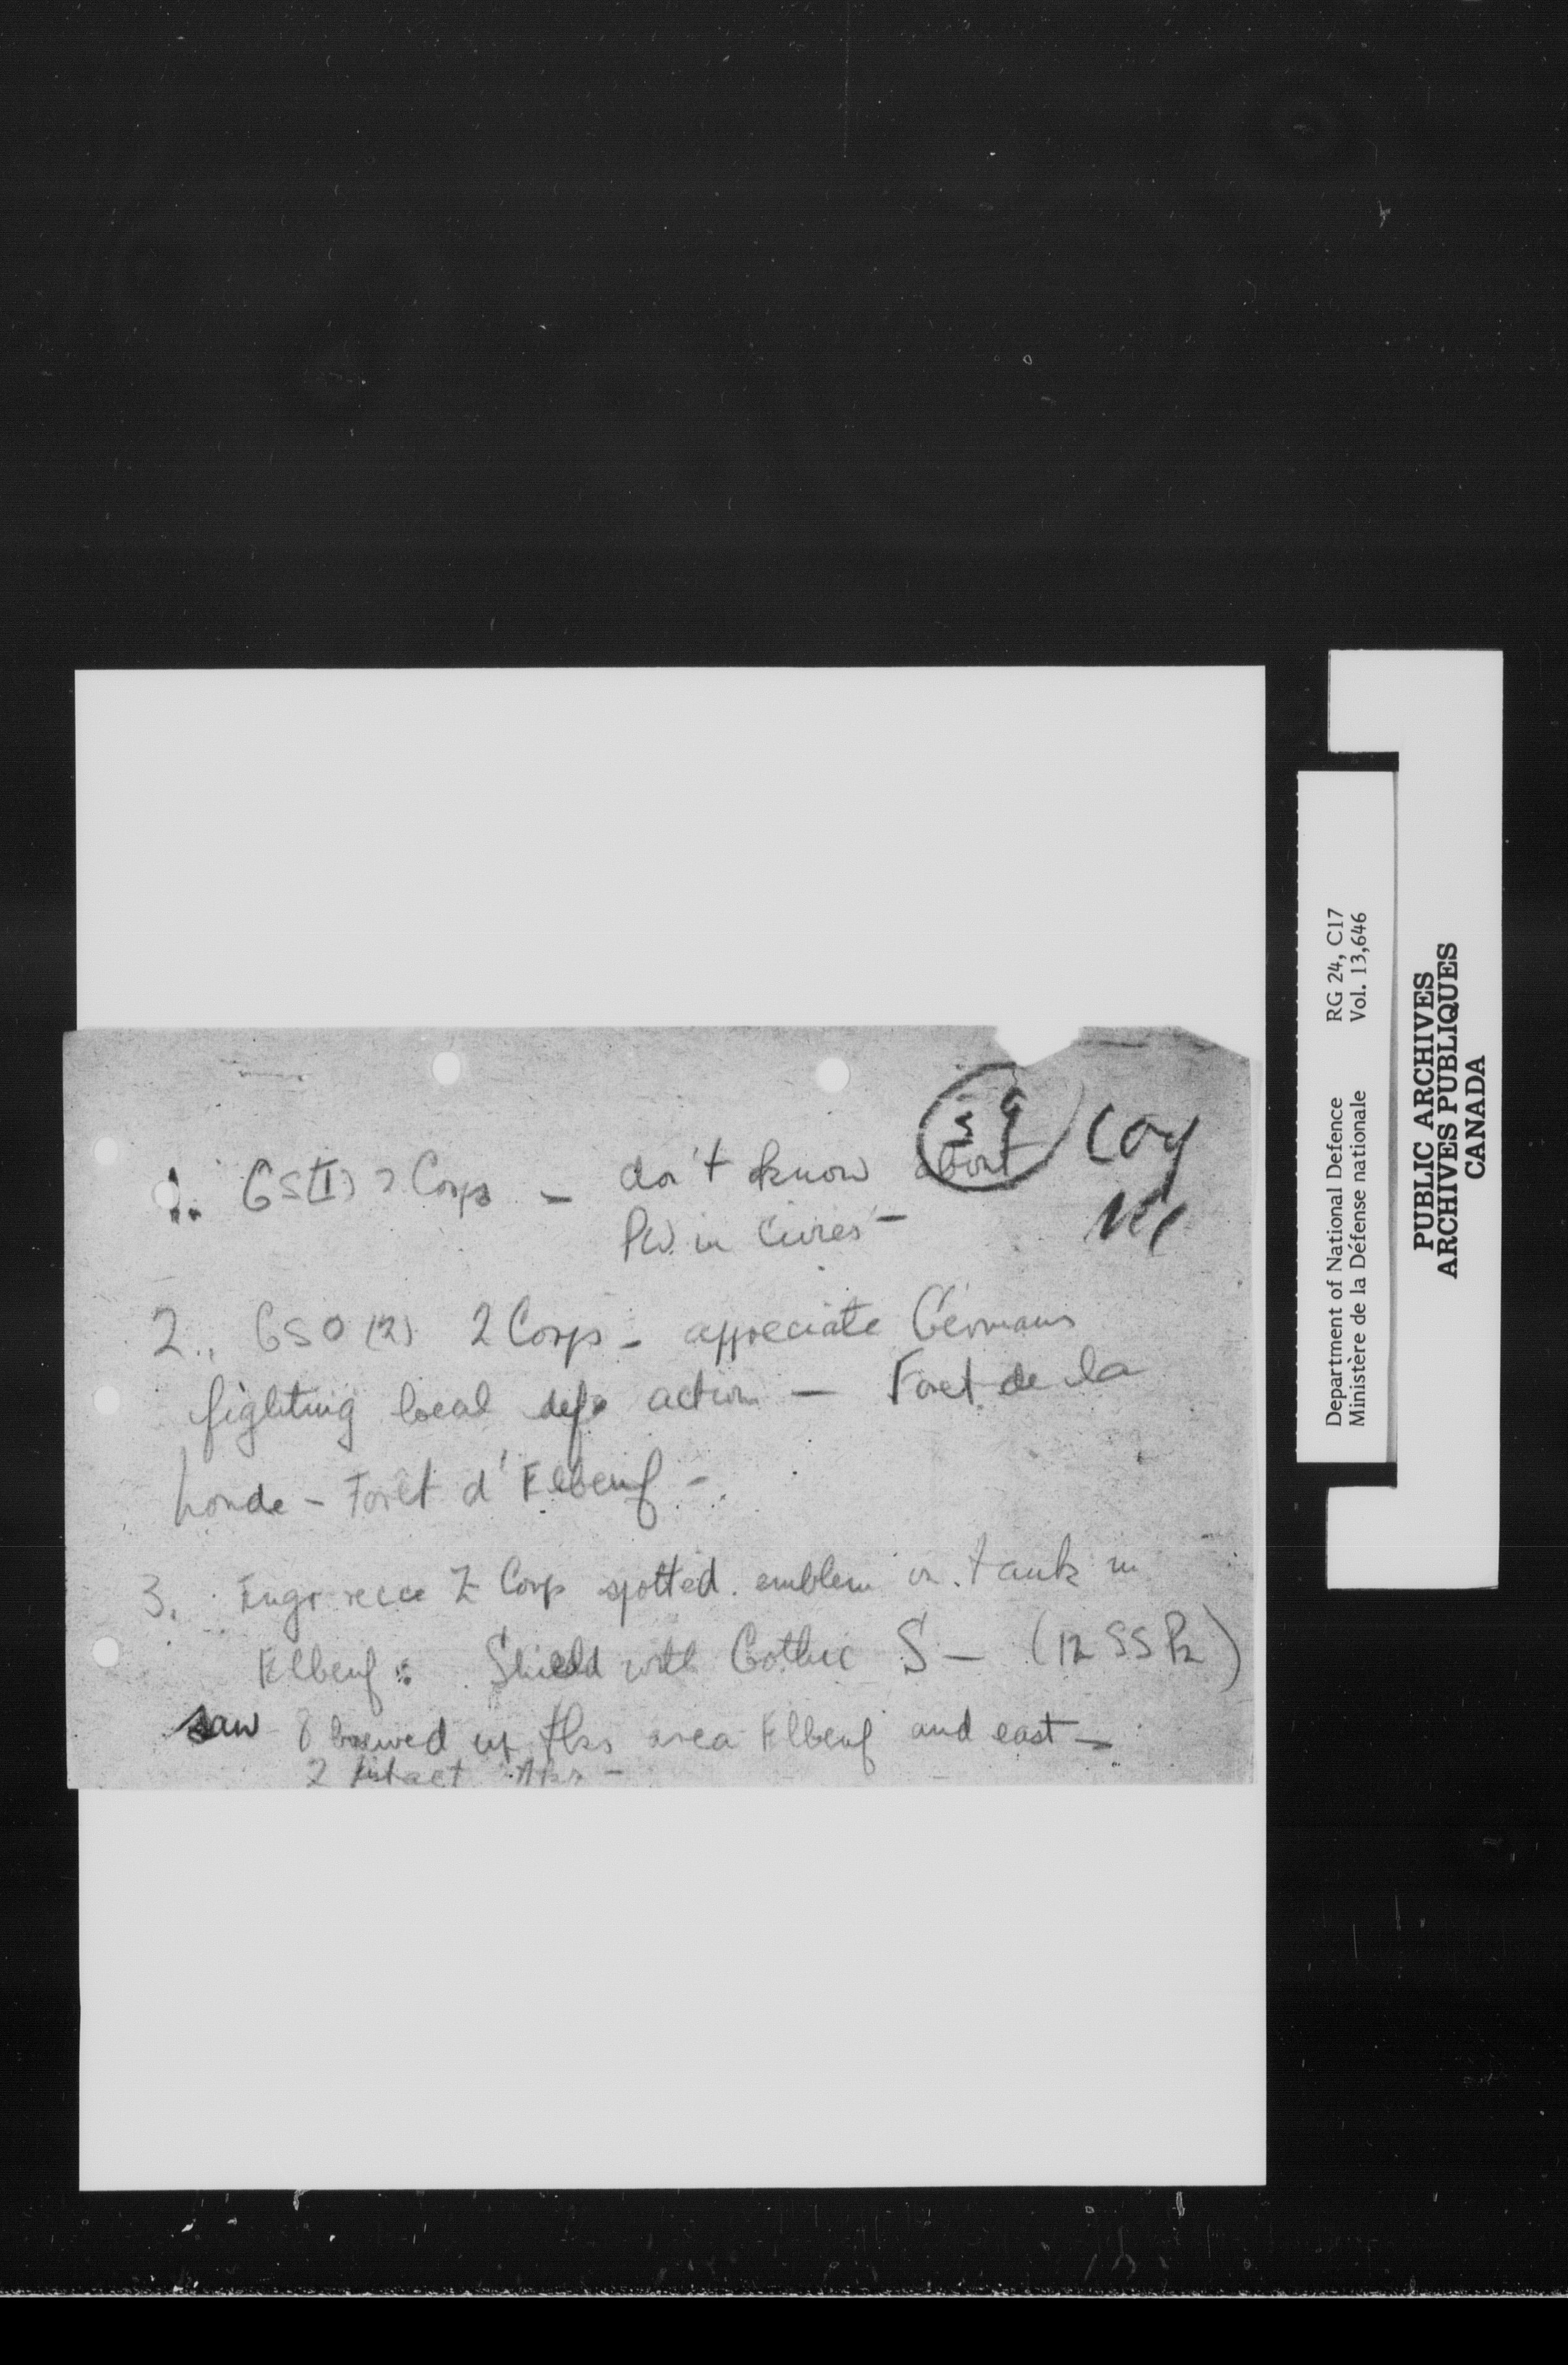 59
Coy
1. GS(I) 2 Corps - don't know about
PW in Civies -
2. GSO (2) 2 Corps - appreciate Germans
fighting local def. action - Foret de la
Londe - Forêt d'Elbeuf -
3. Engr recce 2 Corps spotted emblem on tank in
Elbeuf: Shield with Gothic S - (12 SS Pz)
saw 8 brewed up tks area Elbeuf and east -
2 intact tks -
Department of National Defence RG 24, C17
Ministère de la Défense nationale Vol. 13,646
PUBLIC ARCHIVES
ARCHIVES PUBLIQUES
CANADA